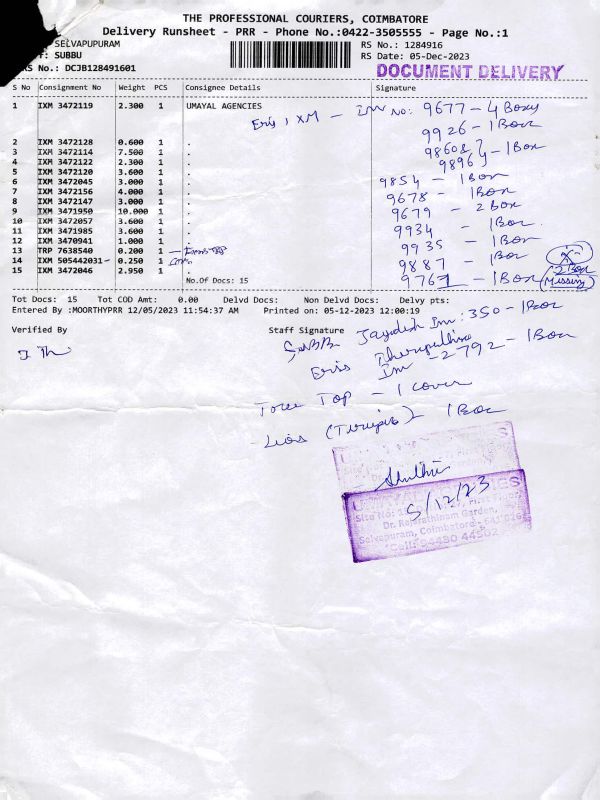 THE PROFESSIONAL COURIERS, COIMBATORE
Delivery Runsheet - PRR - Phone No.:0422-3505555 - Page No.:1
SELVAPUPURAM
SUBBU
RS No.: DCJB128491601
RS No.: 1284916
RS Date: 05-Dec-2023
DOCUMENT DELIVERY
S No Consignment No Weight PCS Consignee Details Signature
1 IXM 3472119 2.300 1 UMAYAL AGENCIES
Eris, XM - Inv No: 9677 - 4 Boxes
9926 - 1 Box
2 IXM 3472128 0.600 1 .
3 IXM 3472114 7.500 1 . 98608
4 IXM 3472122 2.300 1 . 9896 - 1 Box
5 IXM 3472120 3.600 1 .
6 IXM 3472045 3.000 1 . 9854 - 1 Box
7 IXM 3472156 4.000 1 . 9678 - 1 Box
8 IXM 3472147 3.000 1 .
9 IXM 3471950 10.000 1 . 9679 - 2 Box
10 IXM 3472057 3.600 1 . 9934 - 1 Box
11 IXM 3471985 3.600 1 .
12 IXM 3470941 1.000 1 . 9935 - 1 Box
13 TRP 7638540 0.200 1 .
14 IXM 505442031- 0.250 1 . 9887 - 1 Box
15 IXM 3472046 2.950 1 . 9767 - 1 Box
2 Box
Missing
No.Of Docs: 15
Tot Docs: 15 Tot COD Amt: 0.00 Delvd Docs: Non Delvd Docs: Delvy pts:
Entered By :MOORTHYPRR 12/05/2023 11:54:37 AM Printed on: 05-12-2023 12:00:19
Verified By Staff Signature
Inv: 350 - 1 Box
Eris
Inv - 2792 - 1 Box
Top - 1 cover
1 Box
5/12/23
Dr. Rajarathinam Garden,
Selvapuram, Coimbatore - 641 026
Cell: 94430 44502